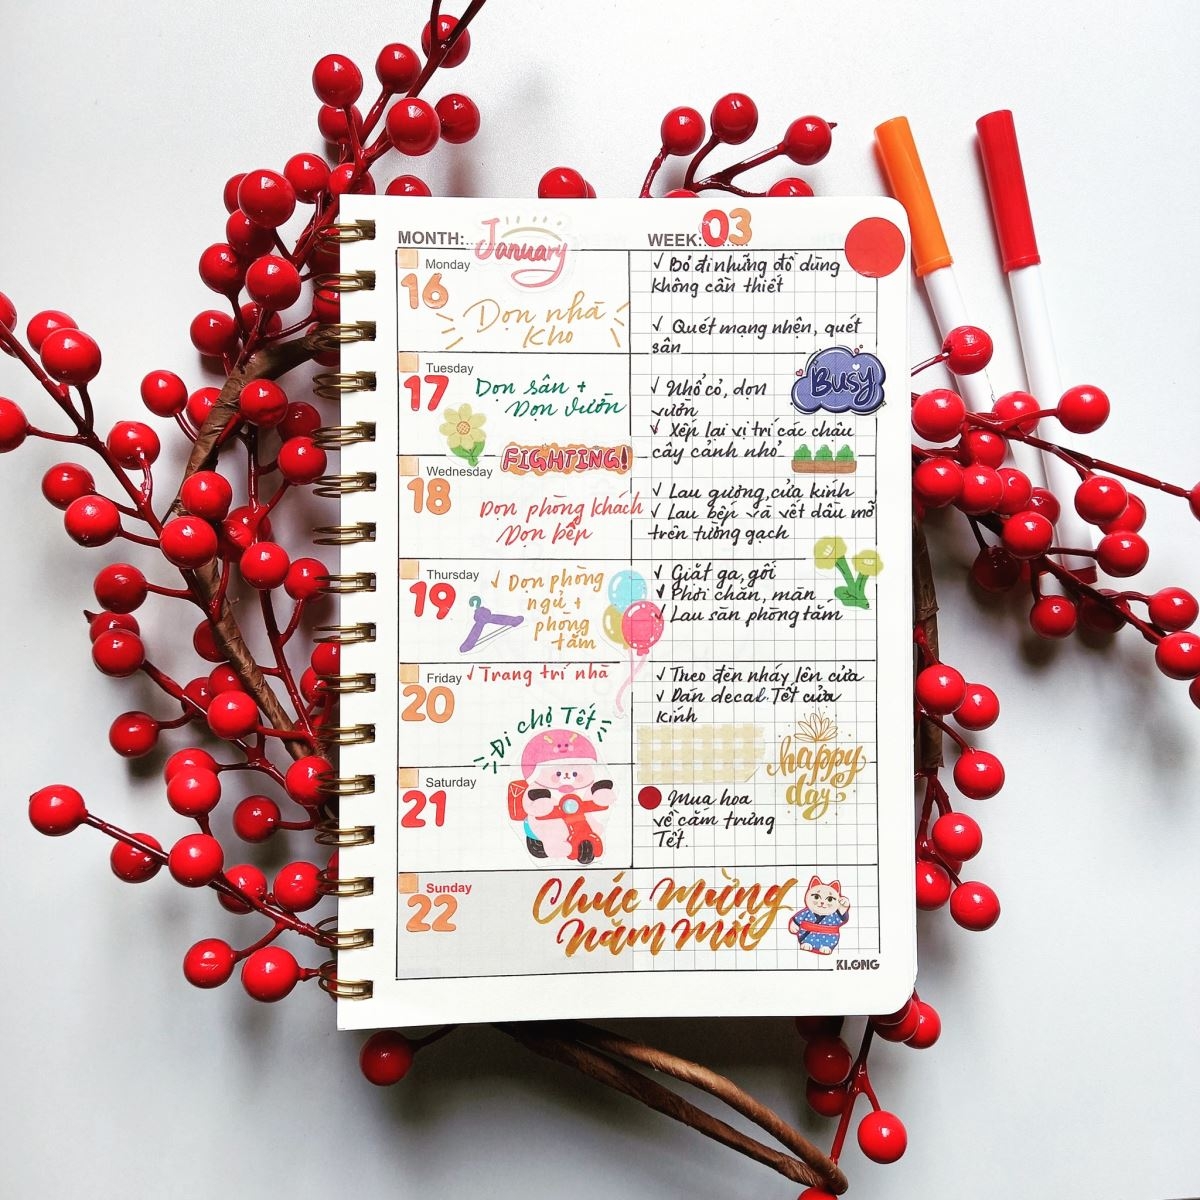 MONTH: January
WEEK: 03
Monday
16
Dọn nhà
kho
✓ Bỏ đi những đồ dùng
không cần thiết
✓ Quét mạng nhện, quét
sân
Tuesday
17
Dọn sân +
Dọn vườn
FIGHTING!
✓ Nhổ cỏ, dọn
vườn
✓ Xếp lại vị trí các chậu
cây cảnh nhỏ
Busy
Wednesday
18
Dọn phòng khách
Dọn bếp
✓ Lau gương, cửa kính
✓ Lau bếp và vết dầu mỡ
trên tường gạch
Thursday
19
✓ Dọn phòng
ngủ +
phòng
tắm
✓ Giặt ga, gối
✓ Phơi chăn, màn
✓ Lau sàn phòng tắm
Friday
20
✓ Trang trí nhà
✓ Theo đèn nháy lên cửa
✓ Dán decal Tết cửa
kính
Đi chợ Tết
happy
day
Saturday
21
Mua hoa
về cắm trưng
Tết.
Sunday
22
Chúc mừng
năm mới
KLONG